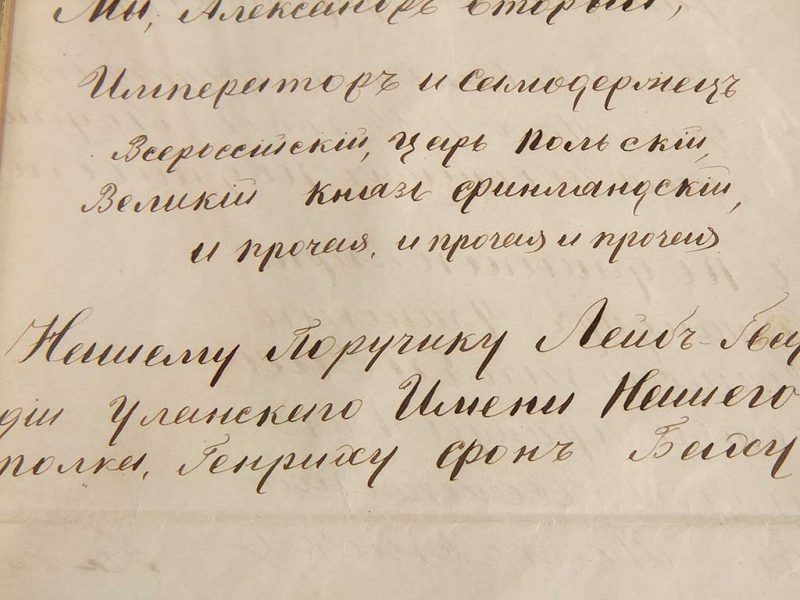 Мы, Александръ Вторый,
Императоръ и Самодержецъ
Всероссійскій, Царь Польскій,
Великій Князь Финляндскій,
и прочая, и прочая и прочая
Нашему Поручику Лейбъ-Гвар
діи Уланскаго Имени Нашего
полка, Генриху фонъ